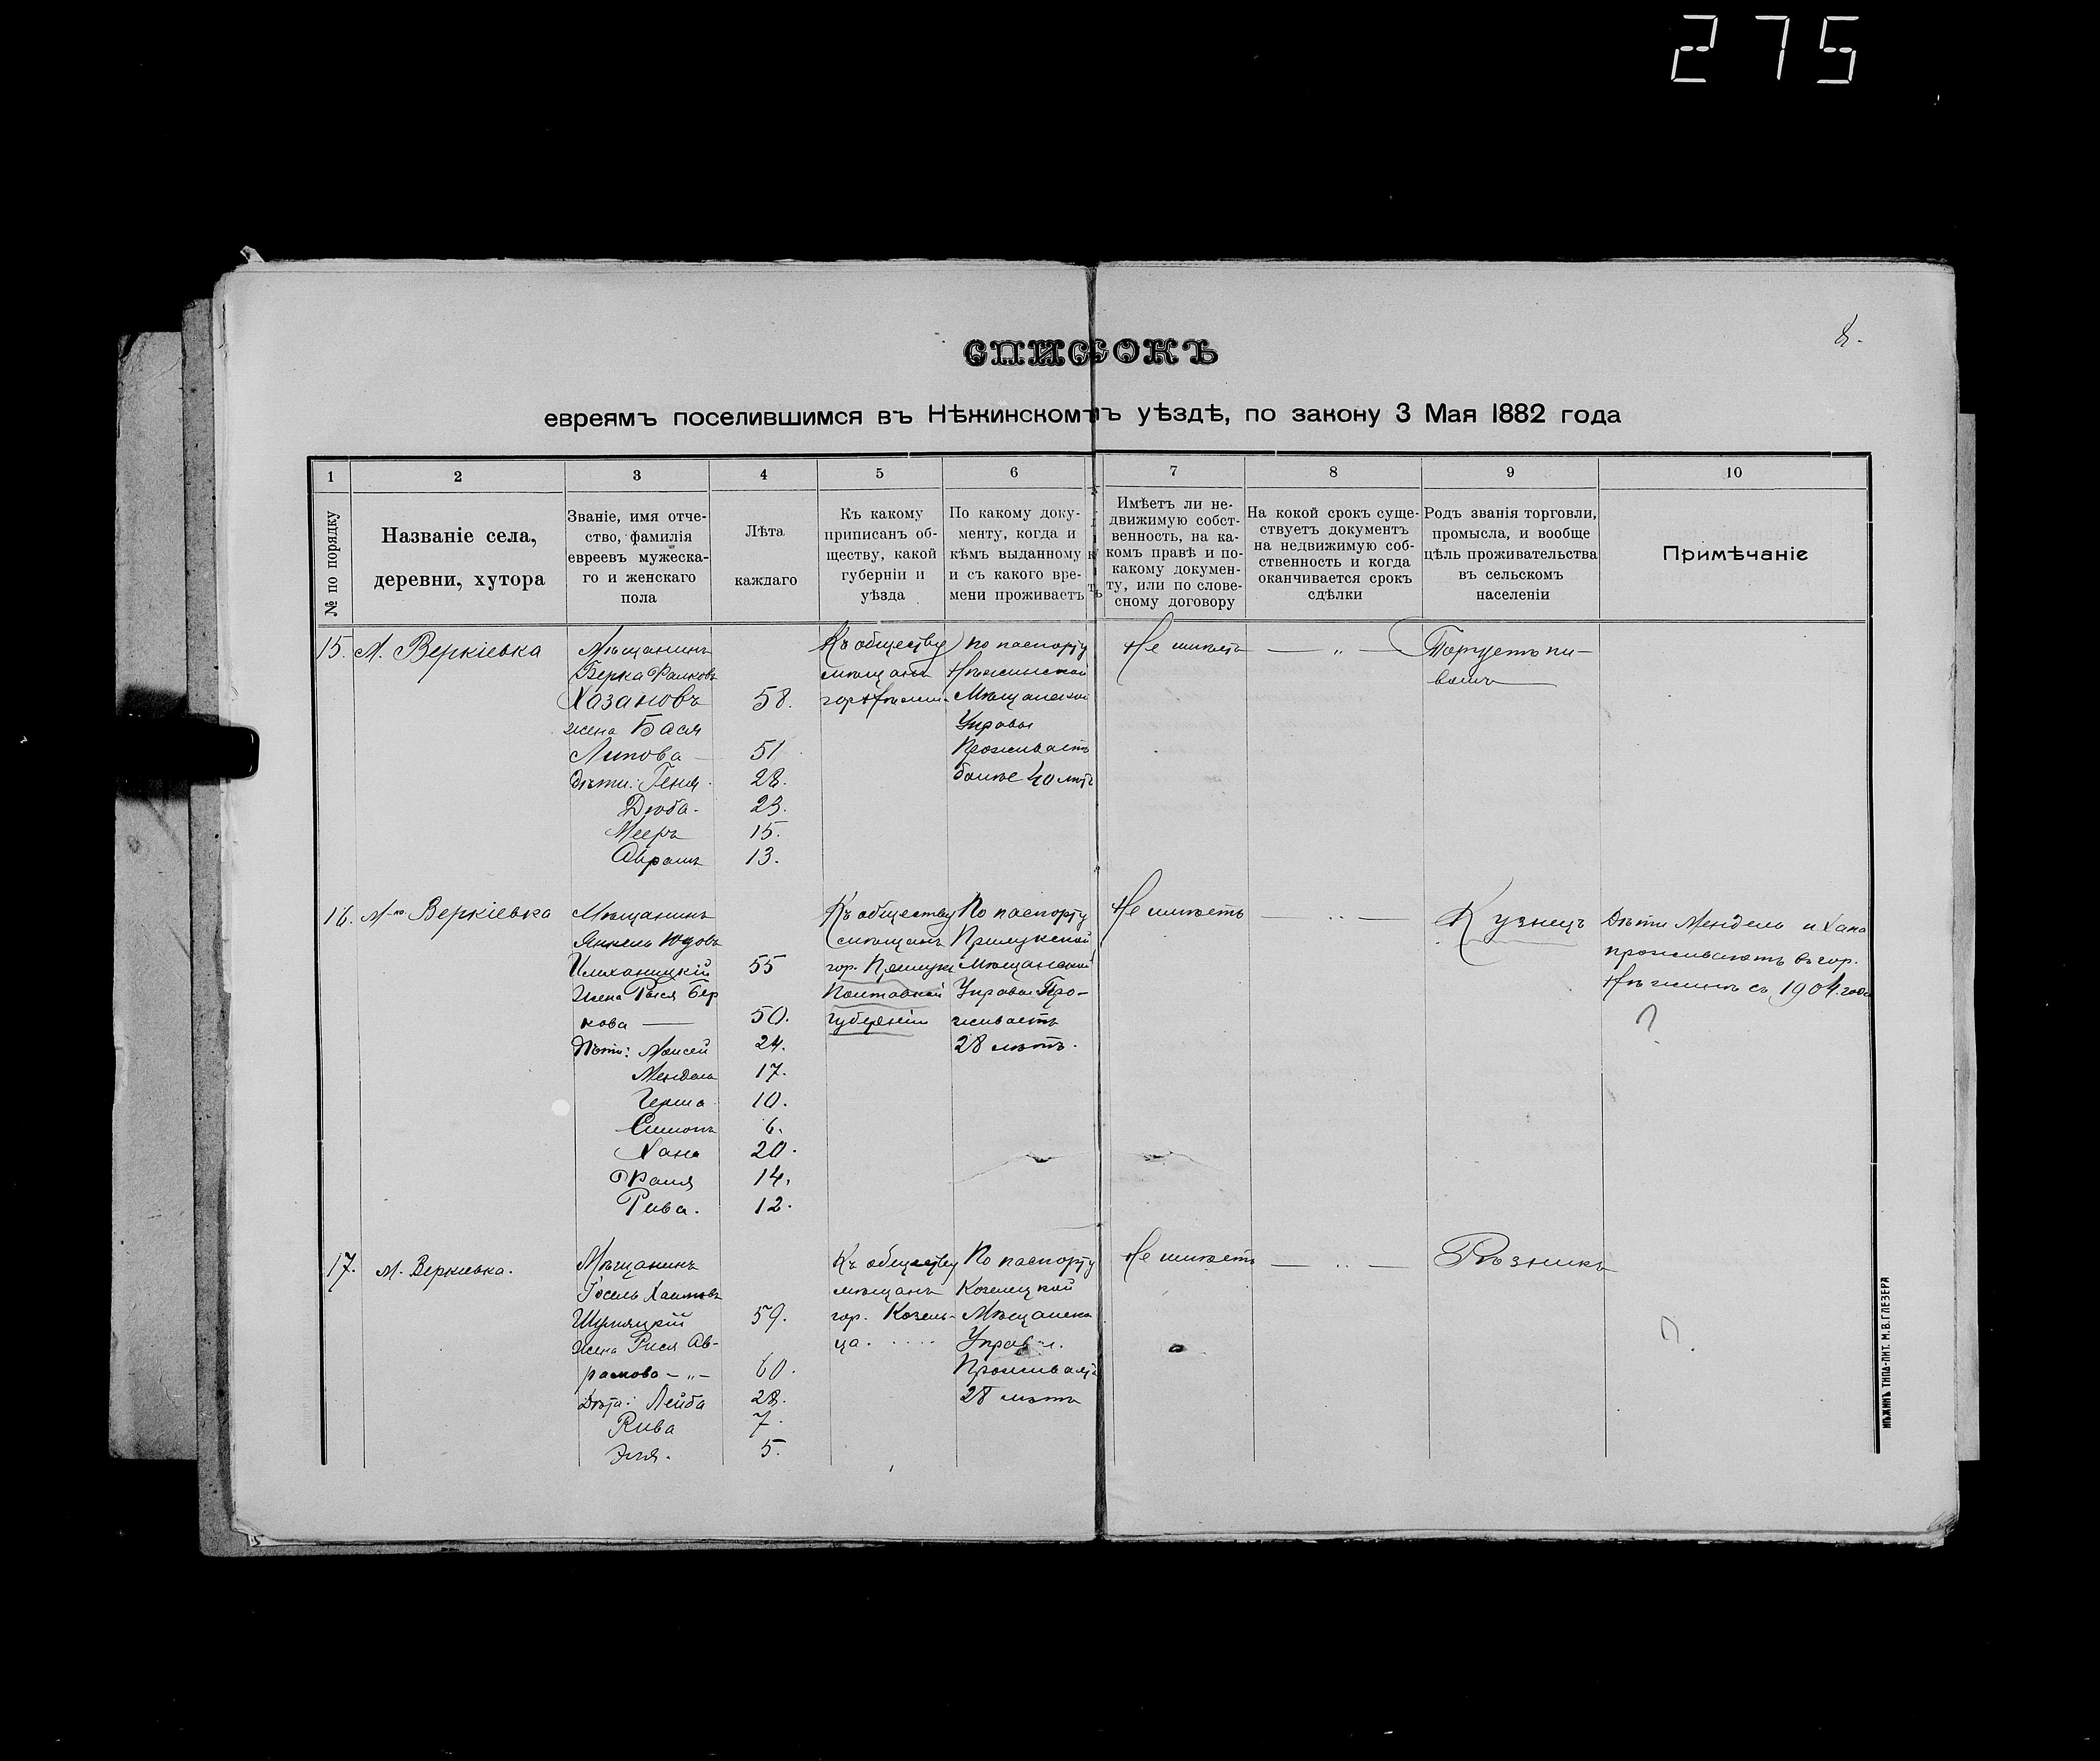 275
8.
СПИСОКЪ
евреямъ поселившимся въ Нѣжинскомъ уѣздѣ, по закону 3 Мая 1882 года
1 2 3 4 5 6 7 8 9 10
№ по порядку
Названіе села,
деревни, хутора
Званіе, имя отче-
ство, фамилія
евреевъ мужеска-
го и женскаго
пола
Лѣта
каждаго
Къ какому
приписанъ об-
ществу, какой
губерніи и
уѣзда
По какому доку-
менту, когда и
кѣмъ выданному
и съ какого вре-
мени проживаетъ
Имѣетъ ли не-
движимую собст-
венность, на ка-
комъ правѣ и по-
какому докумен-
ту, или по слове-
сному договору
На кокой срокъ суще-
ствуетъ документъ
на недвижимую соб-
ственность и когда
оканчивается срокъ
сдѣлки
Родъ званія торговли,
промысла, и вообще
цѣль проживательства
въ сельскомъ
населеніи
Примѣчаніе
15.
М. Веркіевка
Мѣщанинъ
Берка Фалковъ
Хазановъ 58.
жена Бася
Липова — 51
дѣти: Геня. 28.
Доба. 23.
Мееръ 15.
Абрамъ 13.
Къ обществу
мѣщанъ
гор. Нѣжин.
По паспорту
Нѣжинской
Мѣщанской
Управы
Проживаетъ
болѣе 40 лѣтъ
Не имѣетъ
— „ —
Торгуетъ пи-
вомъ
16.
М-ко Веркіевка
Мѣщанинъ
Янкель Юдовъ
55
жена Рыся Бер
кова — 50.
Дѣти: Моисей 24.
Мендель 17.
Герша 10.
Симонъ 6.
Хана 20.
Фаня 14.
Рива. 12.
Къ обществу
мѣщанъ
гор. Прилукъ
Полтавской
губерніи
По паспорту
Прилукской
Мѣщанской
Управы Про-
живаетъ
28 лѣтъ.
Не имѣетъ
— „ —
Кузнецъ
Дѣти Мендель и Хана
проживаютъ въ гор.
Нѣжинѣ съ 1904 года
?
17.
М. Веркиевка.
Мѣщанинъ
Іосель Хаимовъ
Шумяцкій 59.
жена Рися Аб-
рамова — „ — 60.
Дѣти: Лейба 28.
Рива 7.
Эля. 5.
Къ обществу
мѣщанъ
гор. Козель-
ца.
По паспорту
Козелецкой
Мѣщанско
Управы.
Проживаетъ
28 лѣтъ
Не имѣетъ
— „ —
Рѣзникъ
?
НѢЖИНЪ ТИПО-ЛИТ. М.В.ГЛЕЗЕРА